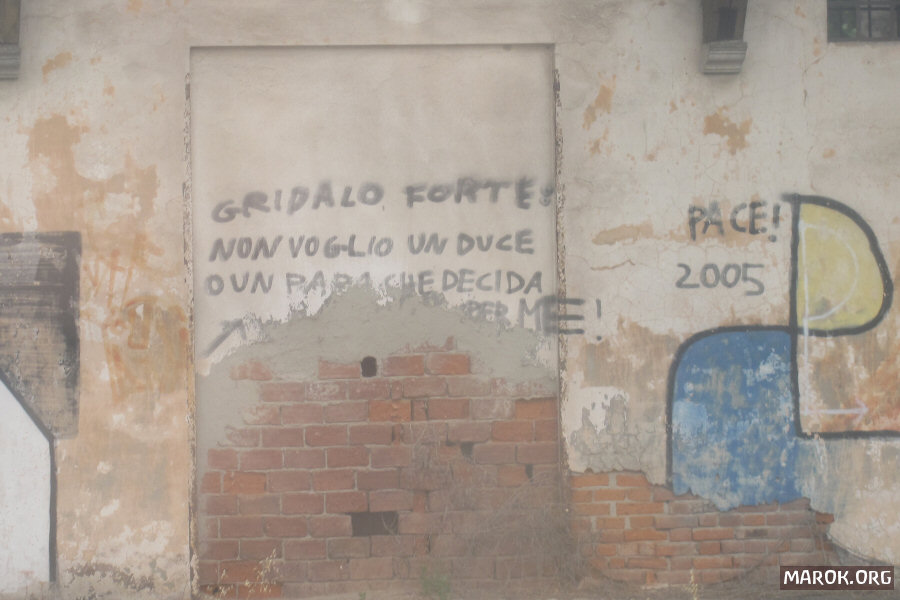 GRIDALO FORTE:
NON VOGLIO UN DUCE
O UN PAPA CHE DECIDA
PER ME!
PACE!
2005
MAROK.ORG